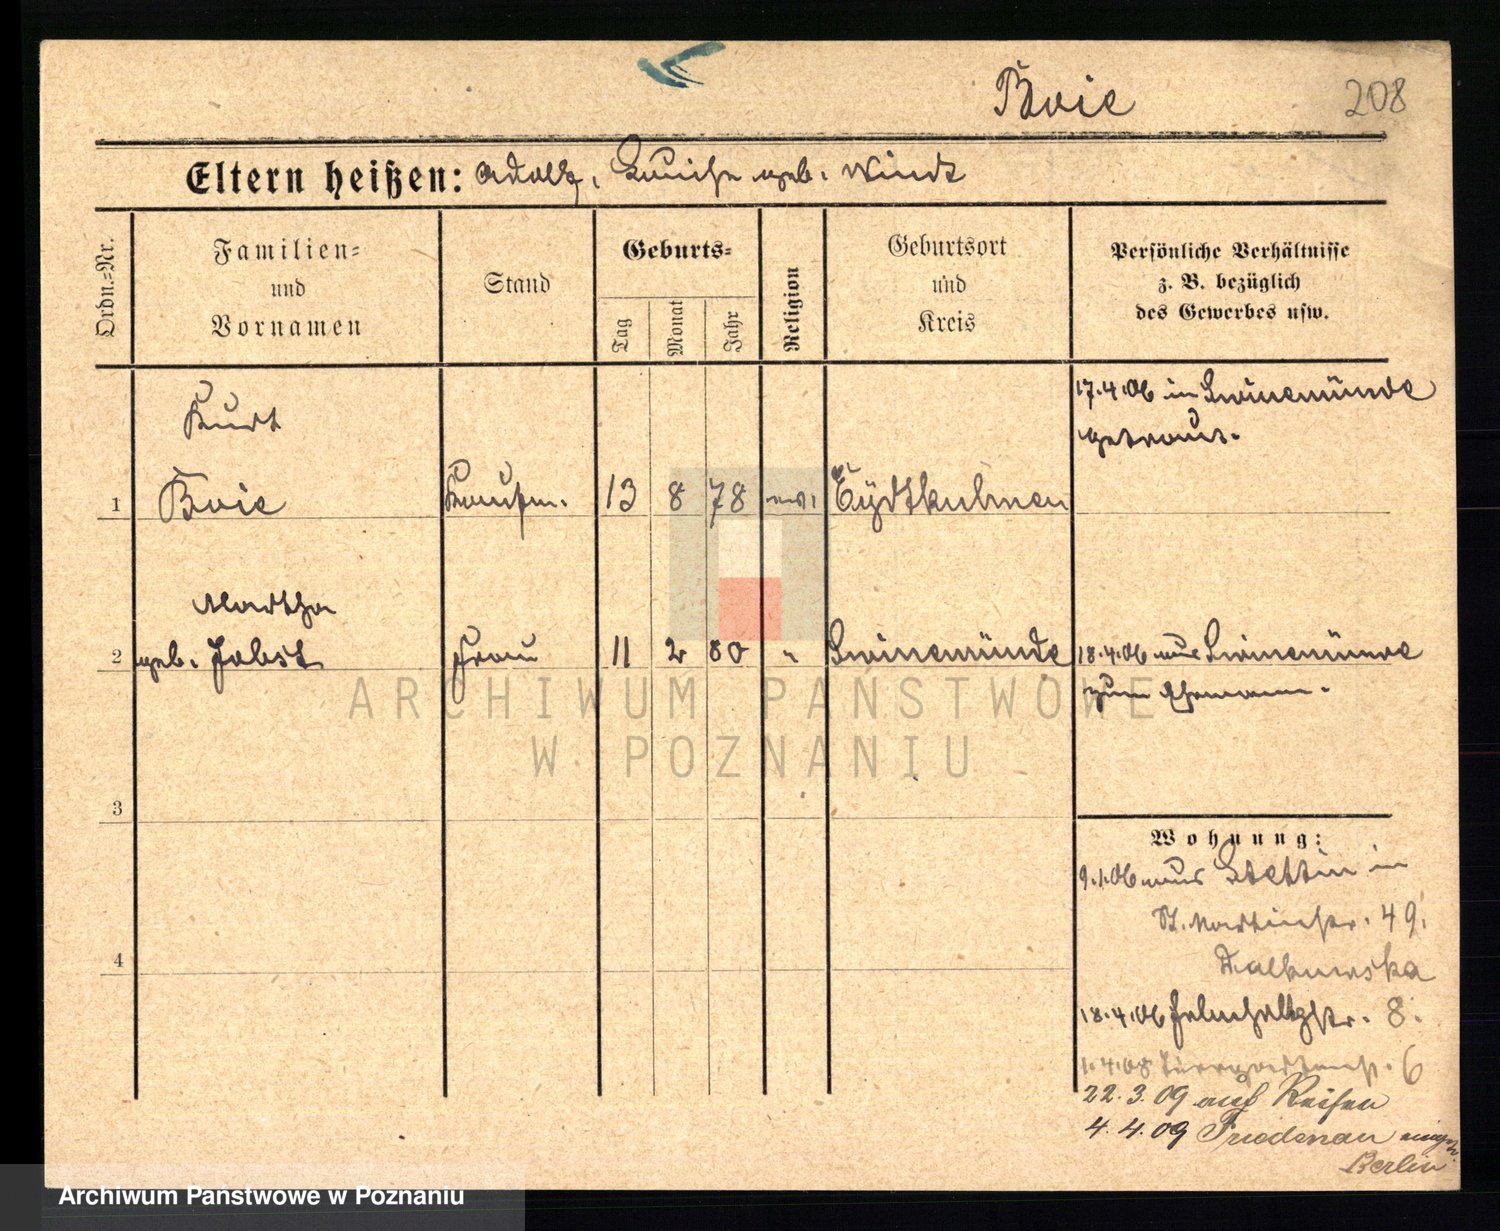 Boie 208
Eltern heißen: Adolf, Luise geb. Windt
Ordn.=Nr.
Familien=
und
Vornamen
Stand
Geburts=
Tag
Monat
Jahr
Religion
Geburtsort
und
Kreis
Persönliche Verhältnisse
z. B. bezüglich
des Gewerbes usw.
Kurt
1 Boie Kaufm. 13 8 78 ev. Eydtkuhnen
17.4.06 in Swinemünde
getraut.
Martha
2 geb. Jabst Frau 11 2 80 " Swinemünde
18.4.06 aus Swinemünde
zum Ehemann.
3
4
Wohnung:
9.1.06 aus Stettin in
St. Martinstr. 49.
18.4.06 8.
1.4.08 Tiergartenstr. 6
22.3.09 auf Reisen
4.4.09 Friedenau
Berlin
ARCHIWUM PAŃSTWOWE
W POZNANIU
Archiwum Państwowe w Poznaniu